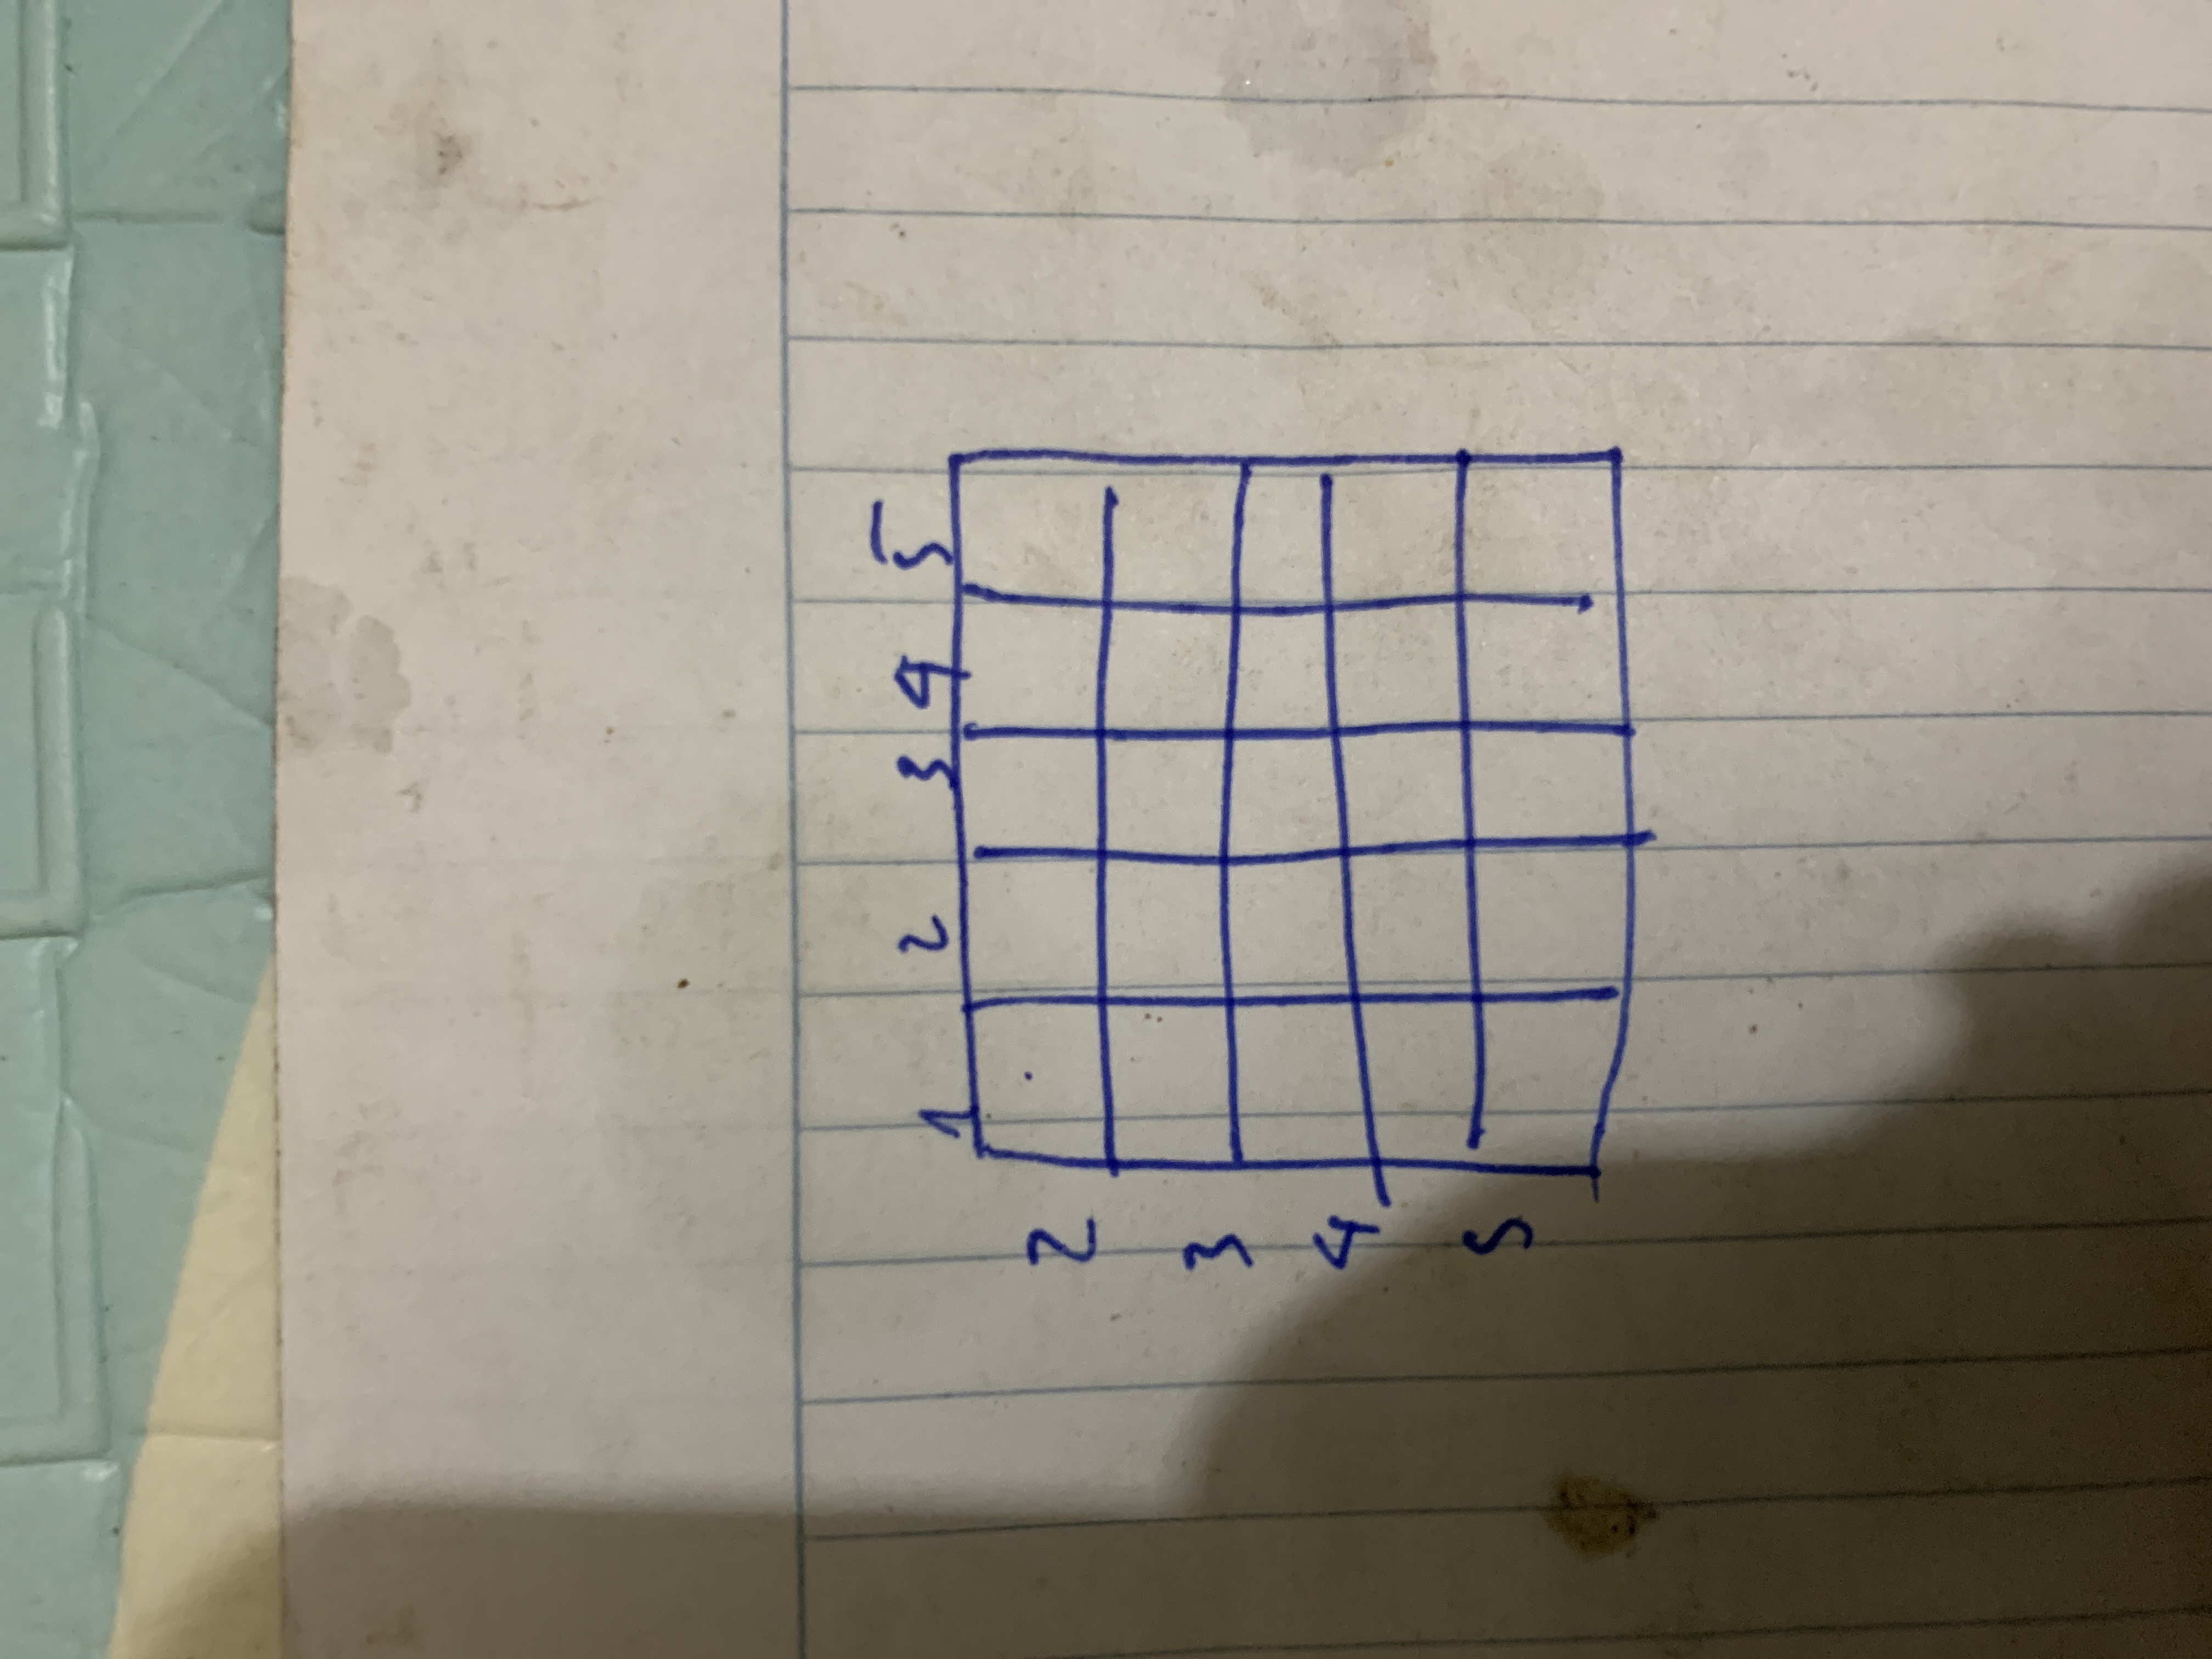 1 2 3 4 5
2
3
4
5